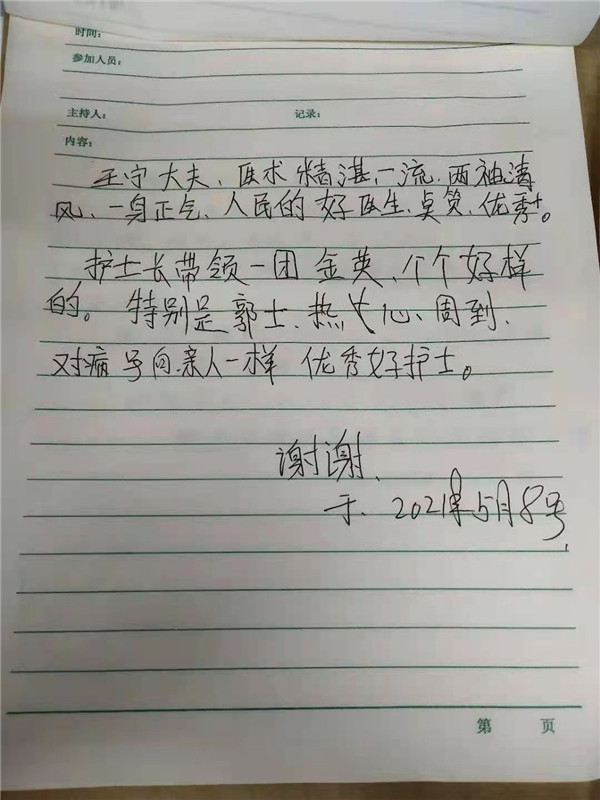 时间:
参加人员:
主持人: 记录:
内容:
王守大夫、医术精湛、一流、两袖清
风、一身正气、人民的好医生、品质、优秀。
护士长带领一团金英、个个好样
的。特别是郭士、热心、周到、
对病号向亲人一样 优秀好护士。
谢谢、
于、2021年5月8号
第 页